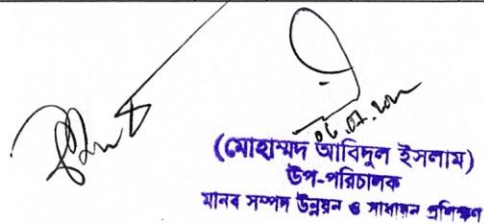 (মোহাম্মদ আবিদুল ইসলাম)
উপ-পরিচালক
মানব সম্পদ উন্নয়ন ও সাধারন প্রশিক্ষণ